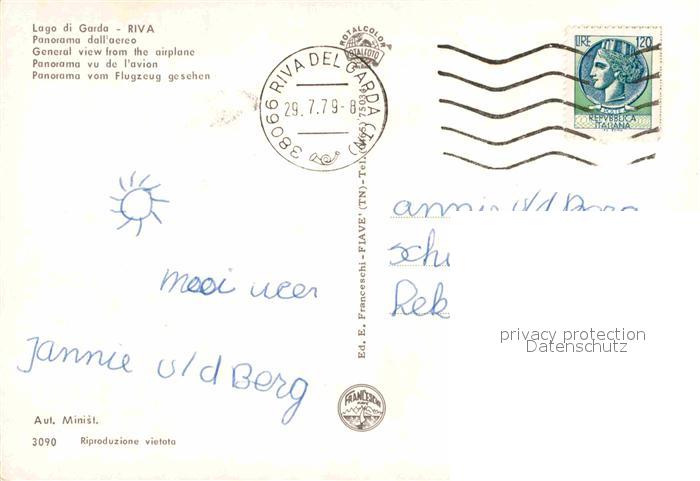 Lago di Garda - RIVA
Panorama dall'aereo
General view from the airplane
Panorama vu de l'avion
Panorama vom Flugzeug gesehen
ROTALCOLOR
ROTALFOTO
38066 RIVA DEL GARDA (TN)
29.7.79-8
LIRE 120
POSTE
REPVBBLICA
ITALIANA
mooi weer
Jannie v/d Berg
Ed. E. Franceschi - FIAVE' (TN) - Tel. (0465) 75034
annie v/d Berg
Schi
Rek
privacy protection
Datenschutz
FRANCESCHI
Aut. Minist.
3090 Riproduzione vietata